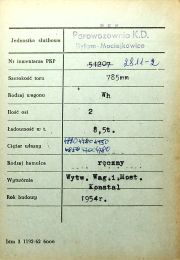 P.K.P.
Jednostka służbowa
Parowozownia K.D.
Bytom-Maciejkowice
Nr inwentarza PKP 51207
Szerokość toru 785mm
Rodzaj wagonu Wh
Ilość osi 2
Ładowność w t. 8,5t.
Ciężar własny
Rodzaj hamulca ręczny
Wytwórnia Wytw. Wag. i. Most.
Konstal
Rok budowy 1954r.